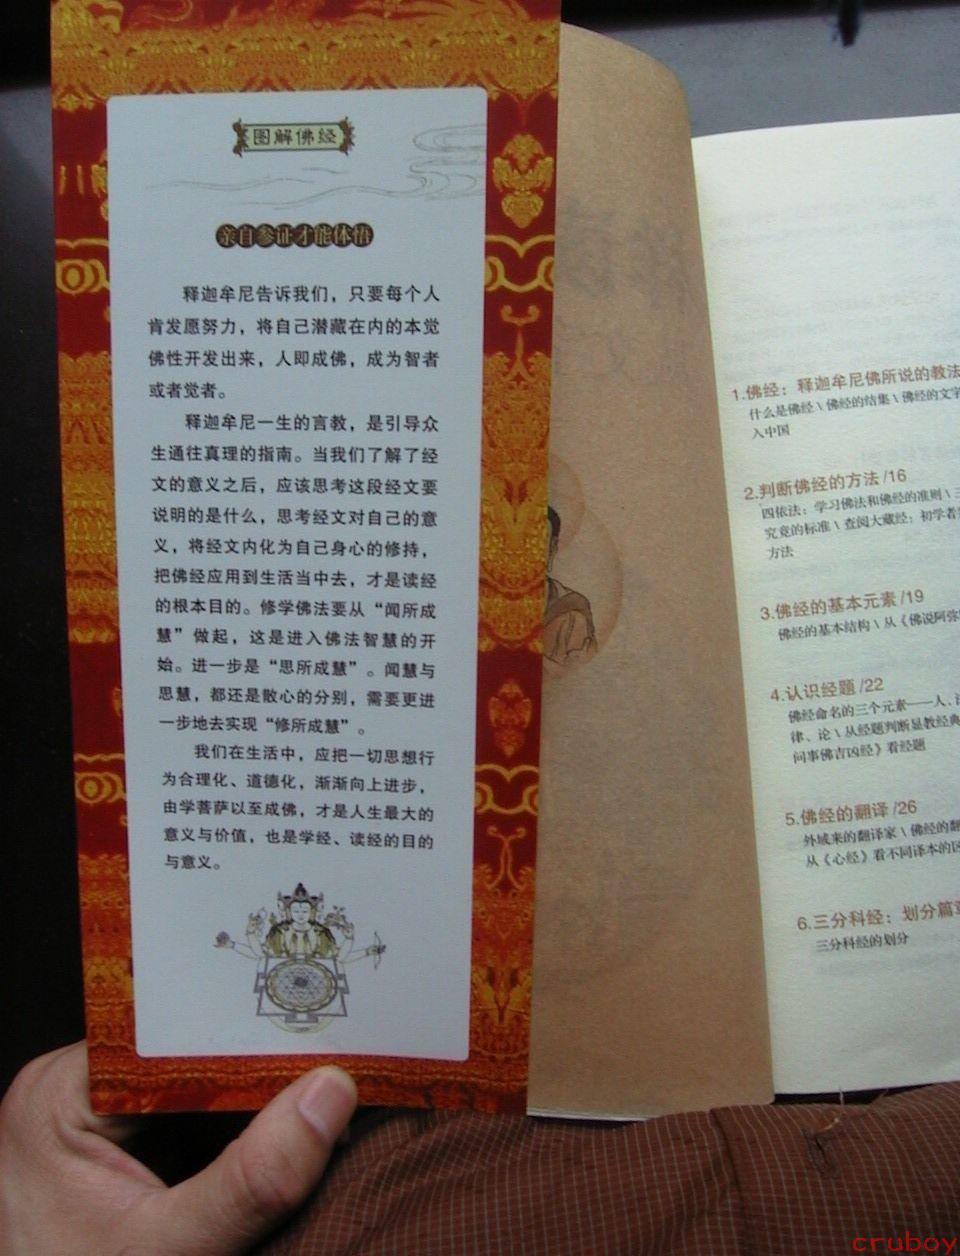 图解佛经
亲自参证才能体悟
释迦牟尼告诉我们，只要每个人
肯发愿努力，将自己潜藏在内的本觉
佛性开发出来，人即成佛，成为智者
或者觉者。
释迦牟尼一生的言教，是引导众
生通往真理的指南。当我们了解了经
文的意义之后，应该思考这段经文要
说明的是什么，思考经文对自己的意
义，将经文内化为自己身心的修持，
把佛经应用到生活当中去，才是读经
的根本目的。修学佛法要从“闻所成
慧”做起，这是进入佛法智慧的开
始。进一步是“思所成慧”。闻慧与
思慧，都还是散心的分别，需要更进
一步地去实现“修所成慧”。
我们在生活中，应把一切思想行
为合理化、道德化，渐渐向上进步，
由学菩萨以至成佛，才是人生最大的
意义与价值，也是学经、读经的目的
与意义。
1.佛经：释迦牟尼佛所说的教法
什么是佛经\佛经的结集\佛经的文字
入中国
2.判断佛经的方法/16
四依法：学习佛法和佛经的准则\三
究竟的标准\查阅大藏经：初学者
方法
3.佛经的基本元素/19
佛经的基本结构\从《佛说阿弥
4.认识经题/22
佛经命名的三个元素——人、法
律、论\从经题判断显教经典
问事佛吉凶经》看经题
5.佛经的翻译/26
外域来的翻译家\佛经的翻
从《心经》看不同译本的区
6.三分科经：划分篇章
三分科经的划分
cruboy